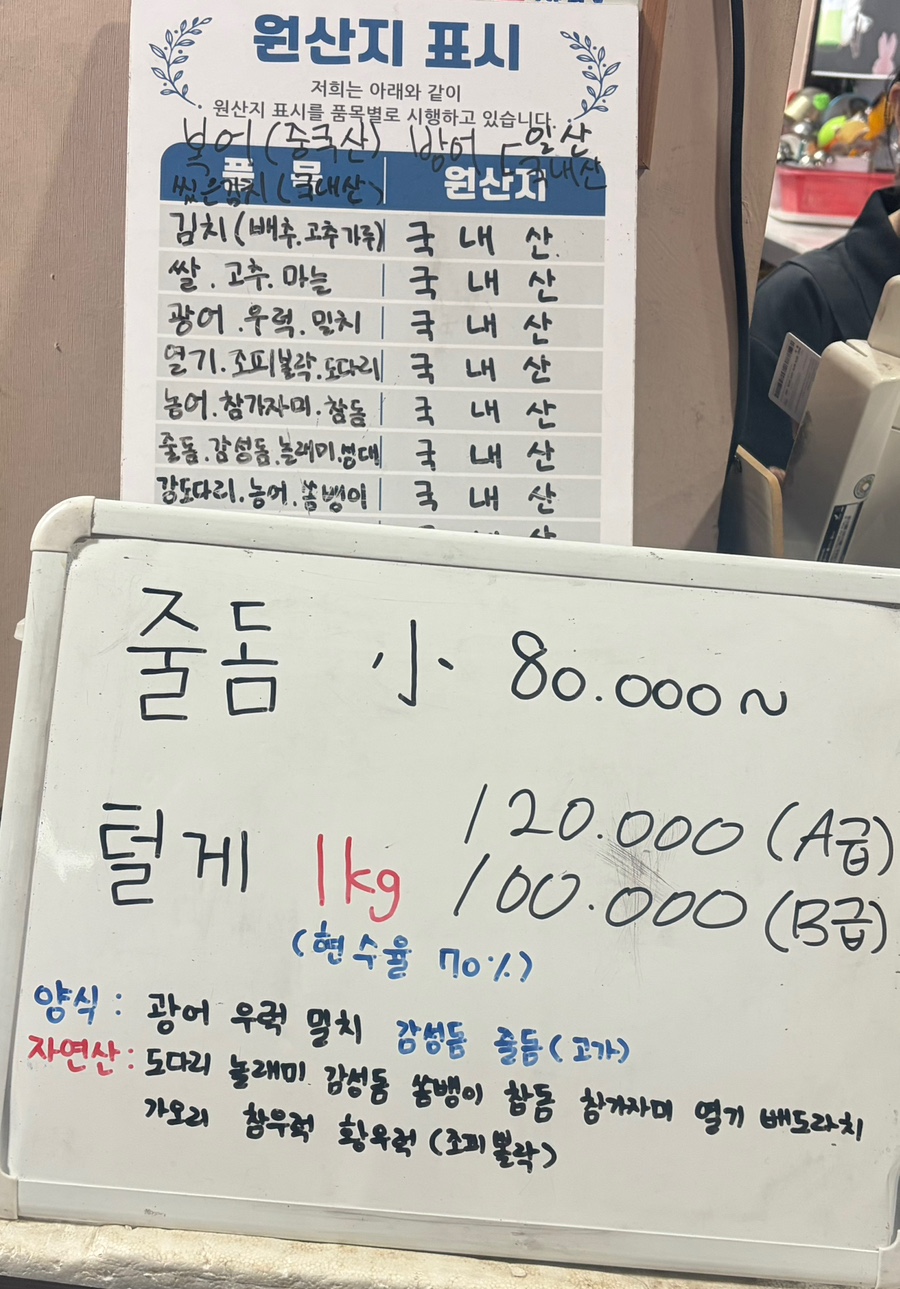 원산지 표시
저희는 아래와 같이
원산지 표시를 품목별로 시행하고 있습니다.
복어(중국산) 방어 일산
국내산
품 목 원산지
씻은김치(국내산)
김치(배추.고추가루) 국 내 산.
쌀.고추.마늘 국 내 산
광어.우럭.밀치 국 내 산
열기.조피볼락.도다리 국 내 산
농어.참가자미.참돔 국 내 산
줄돔.감성돔.놀래미.성대 국 내 산
강도다리.농어.쏨뱅이 국 내 산
줄돔 小 80.000~
털게 1kg 120.000 (A급)
100.000 (B급)
(현 수율 70%)
양식: 광어 우럭 밀치 감성돔 줄돔(고가)
자연산: 도다리 놀래미 감성돔 쏨뱅이 참돔 참가자미 열기 배도라치
가오리 참우럭 황우럭(조피볼락)